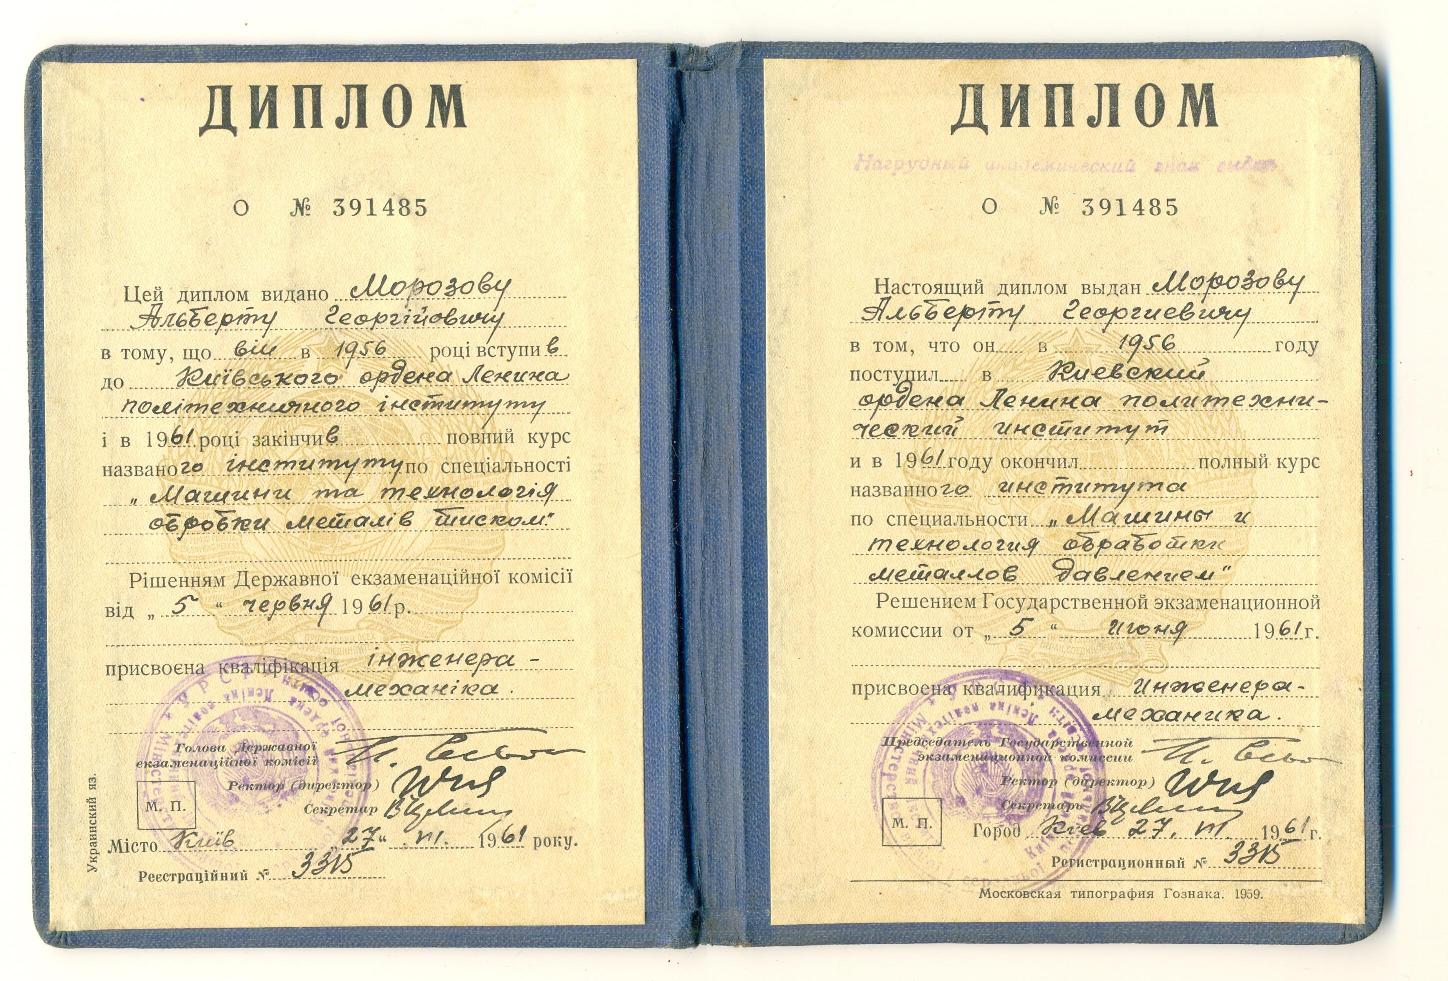 ДИПЛОМ
О № 391485
Цей диплом видано Морозову
Альберту Георгійовичу
в тому, що він в 1956 році вступив
до Київського ордена Леніна
політехничного інституту
і в 1961 році закінчив повний курс
названого інституту по спеціальності
„Машини та технологія
обробки металів тиском"
Рішенням Державної екзаменаційної комісії
від „5" червня 1961 р.
присвоєна кваліфікація інженера-
механіка.
Голова Державної
екзаменаційної комісії
Ректор (директор)
Секретар
М. П.
Місто Київ „27" VI. 1961 року.
Реєстраційний № 3315
Украинский яз.
ДИПЛОМ
Нагрудный академический знак выдан
О № 391485
Настоящий диплом выдан Морозову
Альберту Георгиевичу
в том, что он в 1956 году
поступил в Киевский
ордена Ленина политехни-
ческий институт
и в 1961 году окончил полный курс
названного института
по специальности „Машины и
технология обработки
металлов давлением"
Решением Государственной экзаменационной
комиссии от „5" июня 1961 г.
присвоена квалификация инженера-
механика.
Председатель Государственной
экзаменационной комиссии
Ректор (директор)
Секретарь
М. П.
Город Киев 27. VI. 1961 г.
Регистрационный № 3315
Московская типография Гознака. 1959.